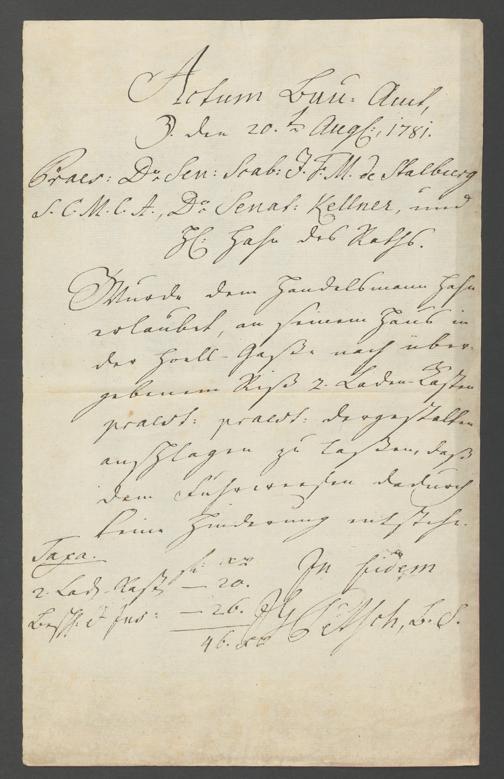 Actum Bau-Amt,
D. den 20.ten Augs:, 1781.
Praes: Dno Sen: Scab: J. F. M. de Stalburg
S. C. M. C. A., Dno Senat: Kellner, und
H: Hahn des Raths.
Wurde dem Handelsmann Hahn
erlaubet, an seinem Haus in
der Hoell-Gaße nach über-
gebenem Riß 2. Laden-Kästen
praest: praest: dergestalten
anschlagen zu laßen, daß
dem Fuhrweesen dadurch
keine Hinderung entstehe.
Taxa.
fl. xr
2. Lad-Kast — 20.
In fidem
Besch: & Ins: — 26.
Pütsch, B. S.
46. xr